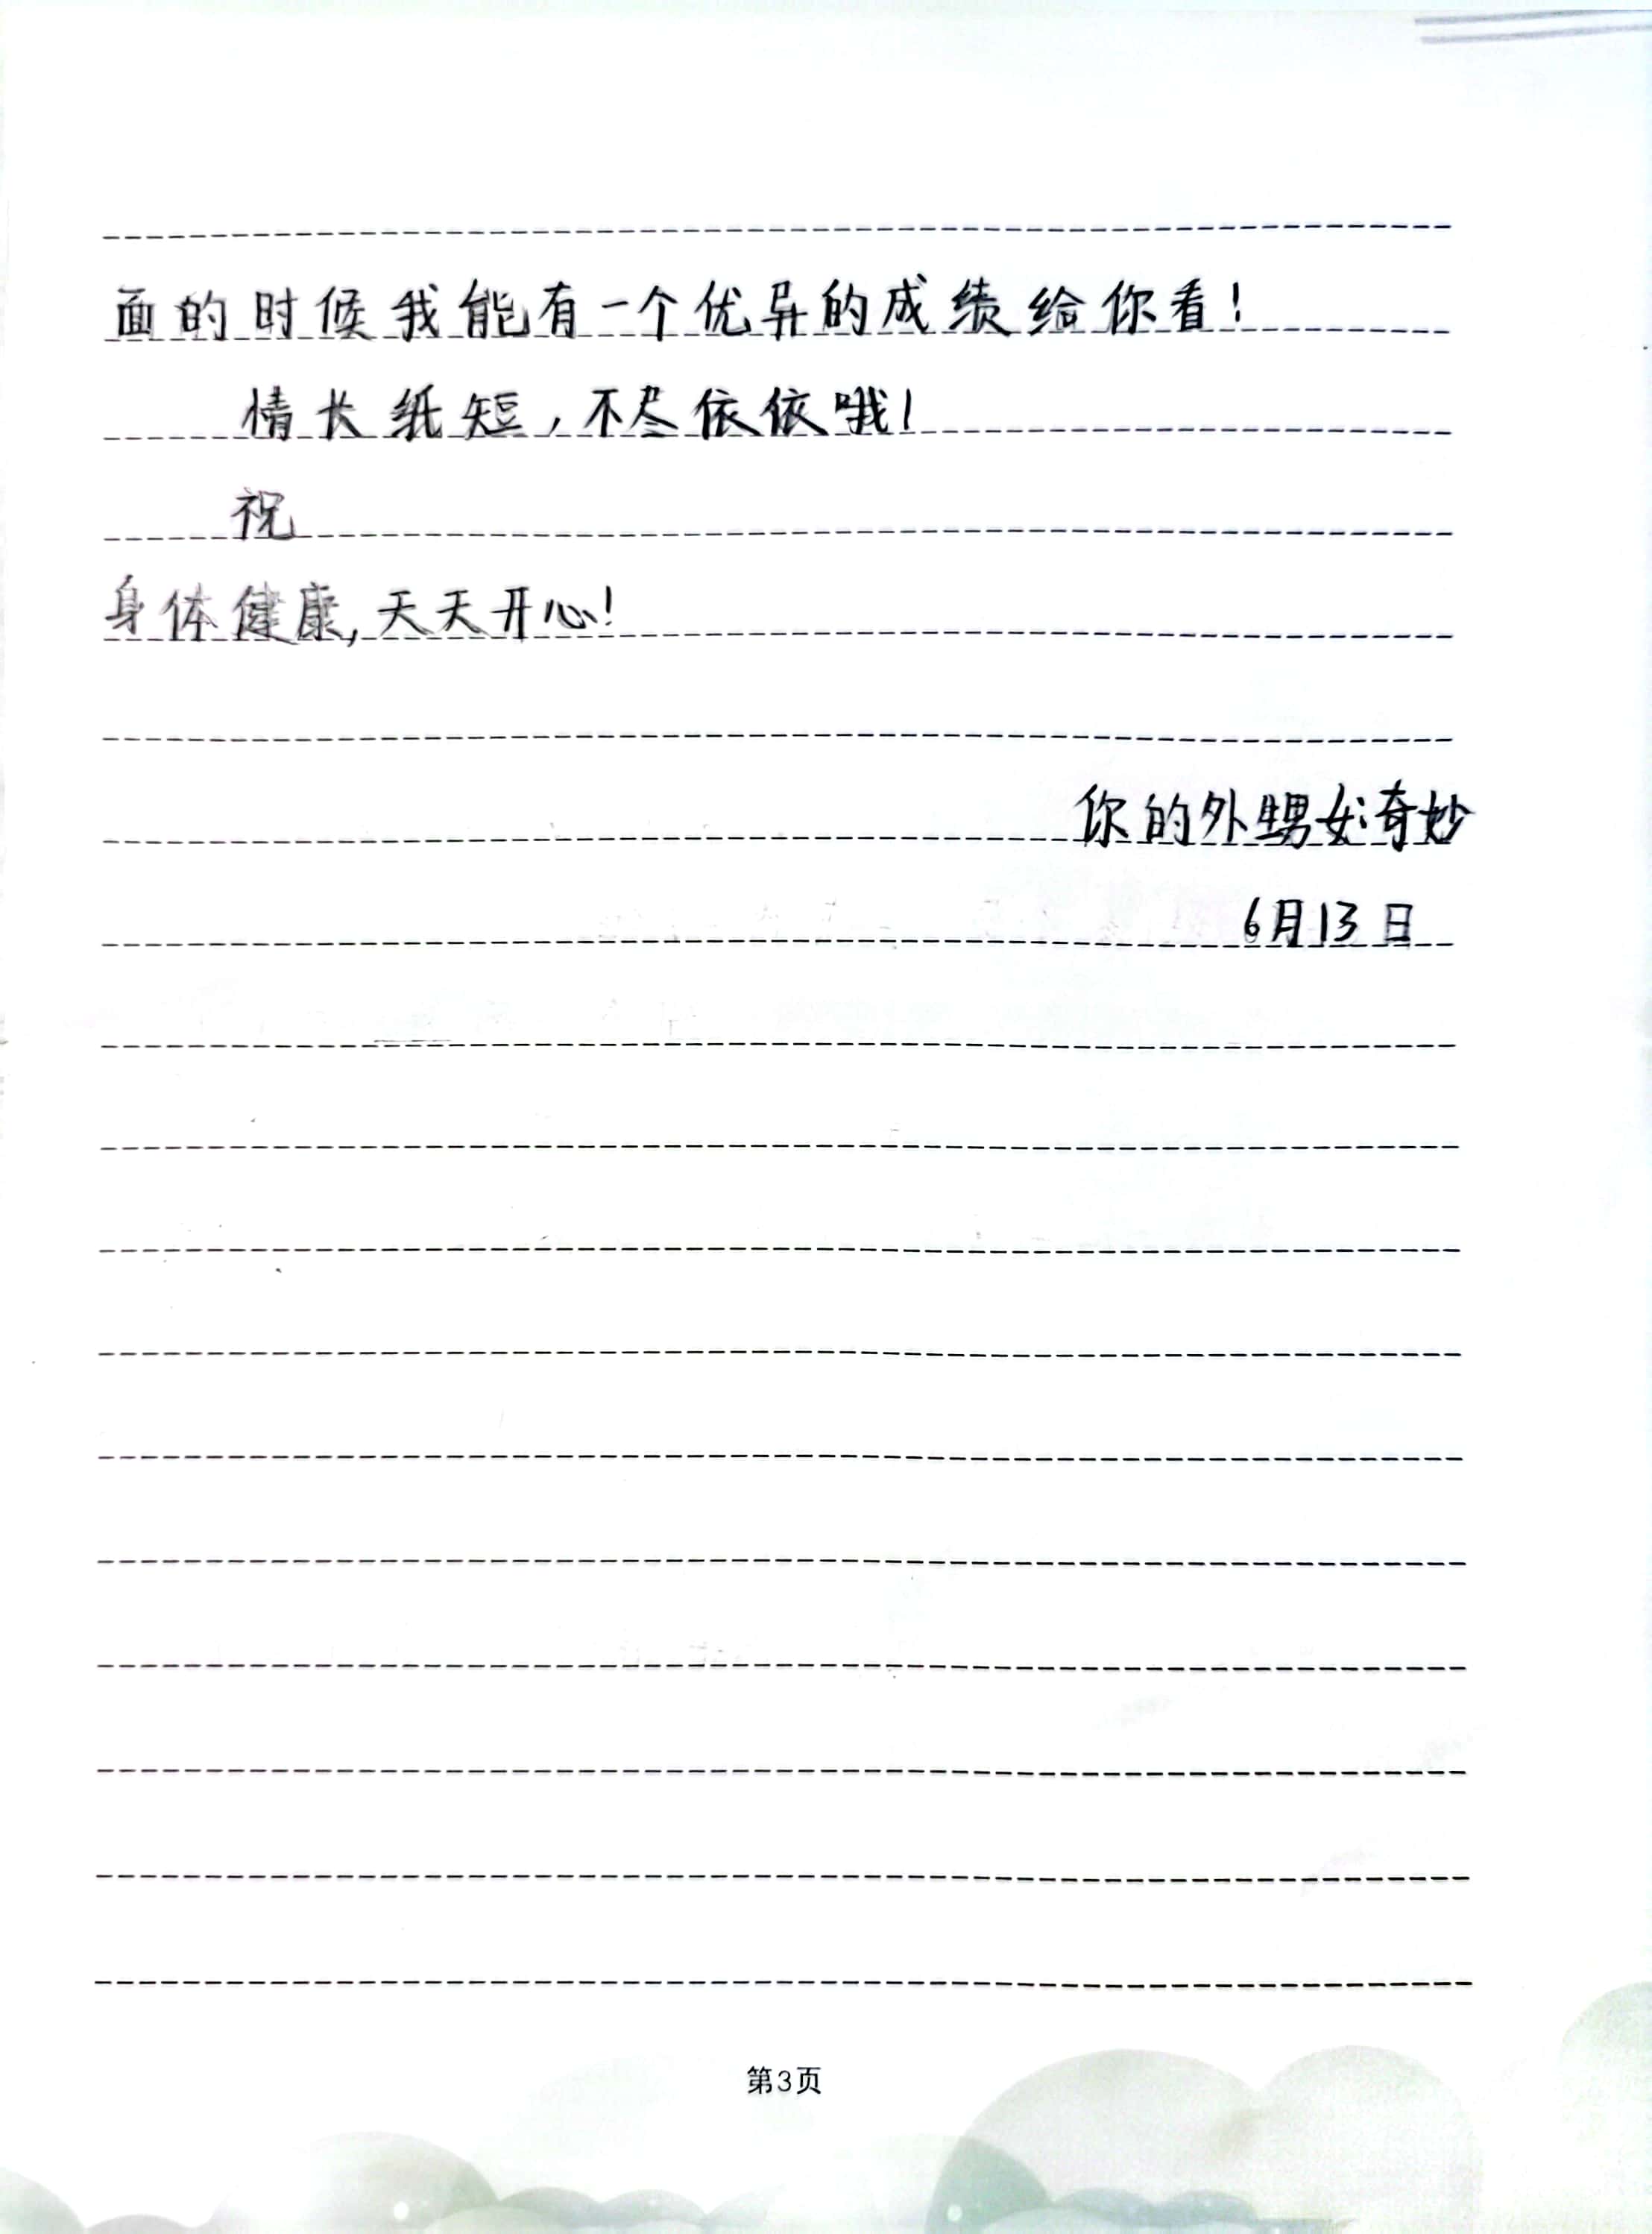 面的时候我能有一个优异的成绩给你看!
情长纸短,不尽依依哦!
祝
身体健康,天天开心!
你的外甥女:奇妙
6月13日
第3页